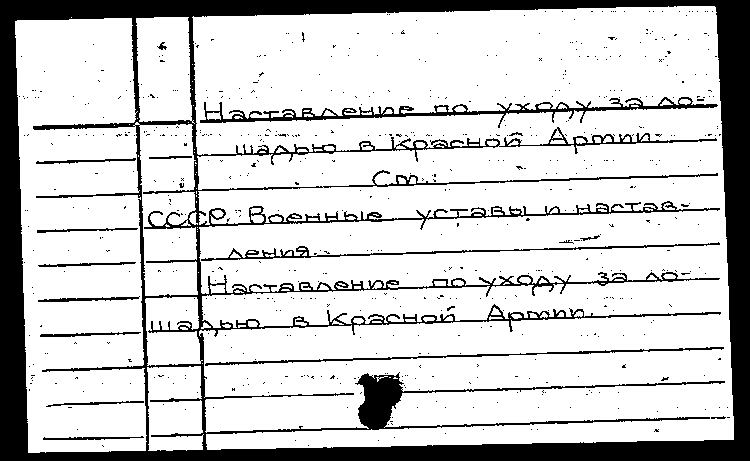 Наставление по уходу за ло-
шадью в Красной Армии.
См.:
СССР. Военные уставы и настав-
ления.
Наставление по уходу за ло-
шадью в Красной Армии.